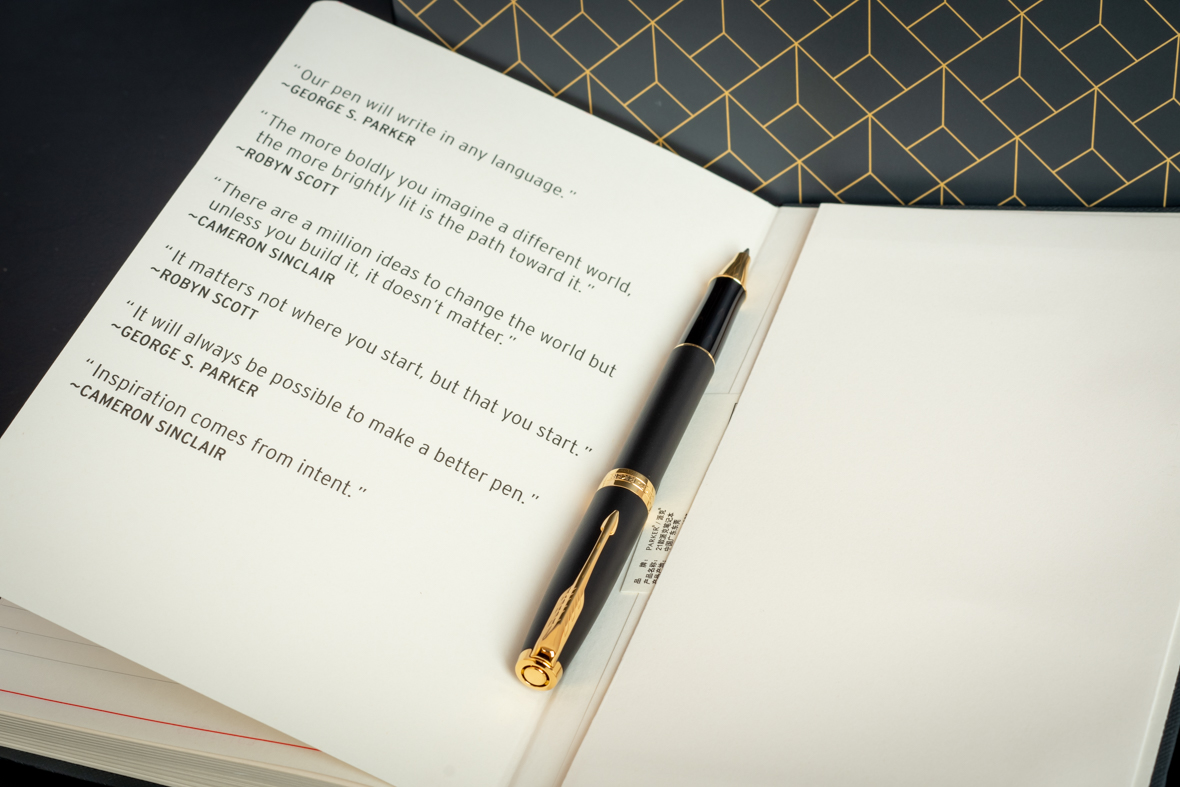 “Our pen will write in any language.”
~GEORGE S. PARKER
“The more boldly you imagine a different world,
the more brightly lit is the path toward it.”
~ROBYN SCOTT
“There are a million ideas to change the world but
unless you build it, it doesn't matter.”
~CAMERON SINCLAIR
“It matters not where you start, but that you start.”
~ROBYN SCOTT
“It will always be possible to make a better pen.”
~GEORGE S. PARKER
“Inspiration comes from intent.”
~CAMERON SINCLAIR
品 牌： PARKER®/派克®
产品名称： 21款派克笔记本
中国广东东莞